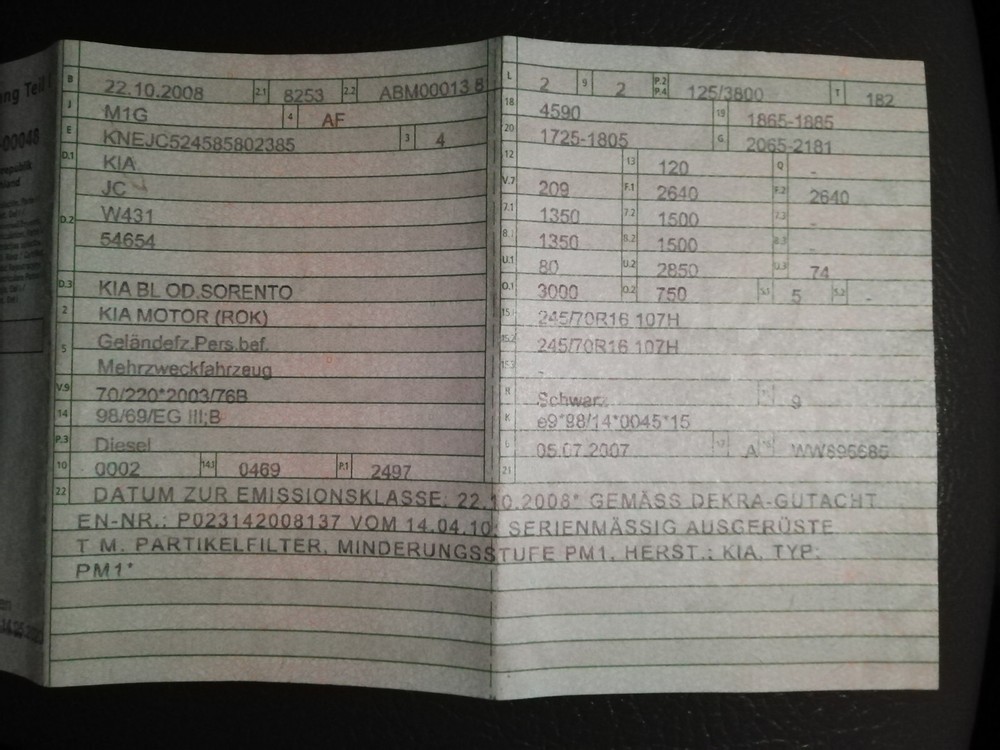 ung Teil I
-00048
B 22.10.2008 2.1 8253 2.2 ABM00013 8
J M1G 4 AF
E KNEJC524585802385 3 4
D.1 KIA
JC
D.2 W431
54654
D.3 KIA BL OD.SORENTO
2 KIA MOTOR (ROK)
5 Geländefz.Pers.bef.
Mehrzweckfahrzeug
V.9 70/220*2003/76B
14 98/69/EG III;B
P.3 Diesel
10 0002 14.1 0469 P.1 2497
L 2 9 2 P.2 P.4 125/3800 T 182
18 4590 19 1865-1885
20 1725-1805 G 2065-2181
12 13 120 Q -
V.7 209 F.1 2640 F.2 2640
7.1 1350 7.2 1500 7.3 -
8.1 1350 8.2 1500 8.3 -
U.1 80 U.2 2850 U.3 74
O.1 3000 O.2 750 S.1 5 S.2 -
15.1 245/70R16 107H
15.2 245/70R16 107H
15.3 -
R Schwarz 9
K e9*98/14*0045*15
6 05.07.2007 A WW895685
21
22 DATUM ZUR EMISSIONSKLASSE: 22.10.2008* GEMÄSS DEKRA-GUTACHT
EN-NR.: P023142008137 VOM 14.04.10: SERIENMÄSSIG AUSGERÜSTE
T M. PARTIKELFILTER, MINDERUNGSSTUFE PM1, HERST.: KIA, TYP:
PM1*